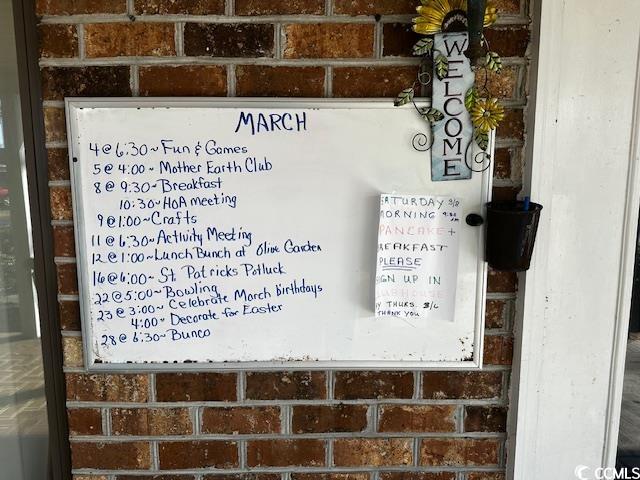 MARCH
4 @ 6:30 ~ Fun & Games
5 @ 4:00 ~ Mother Earth Club
8 @ 9:30 ~ Breakfast
10:30 ~ HOA meeting
9 @ 1:00 ~ Crafts
11 @ 6:30 ~ Activity Meeting
12 @ 1:00 ~ Lunch Bunch at Olive Garden
16 @ 6:00 ~ St. Patricks Potluck
22 @ 5:00 ~ Bowling
23 @ 3:00 ~ Celebrate March birthdays
4:00 ~ Decorate for Easter
28 @ 6:30 ~ Bunco
WELCOME
SATURDAY 3/8
MORNING 9:30
PANCAKE +
BREAKFAST
PLEASE
SIGN UP IN
CLUBHOUSE
BY THURS. 3/6
THANK YOU
CCMLS